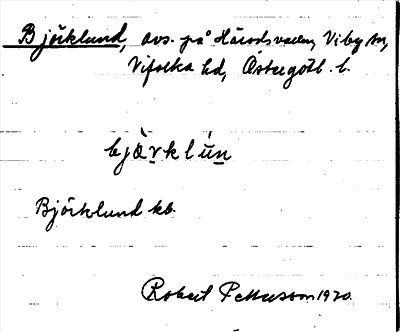 Björklund, avs. på Häradsvallen, Viby sn,
Vifolka hd, Östergötl. l.
bjàrklún
Björklund kb.
Robert Pettersson 1920.